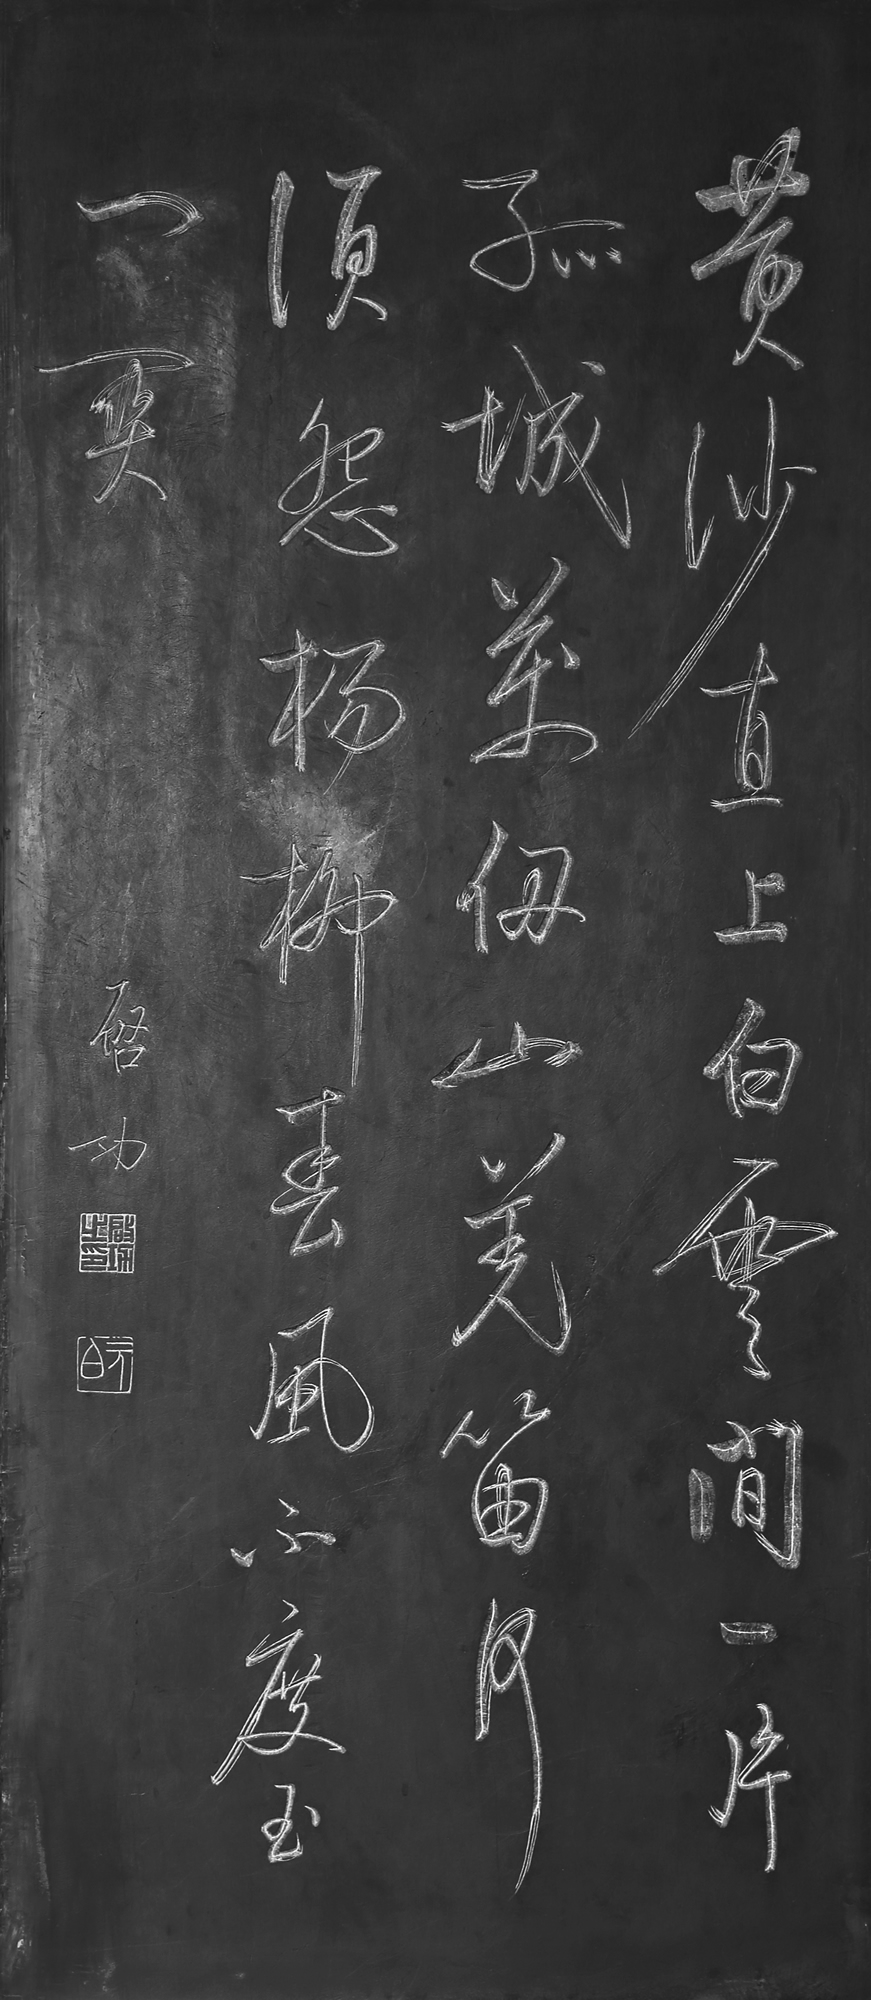 黄沙直上白雲間一片
孤城萬仞山羌笛何
須怨楊柳春風不度玉
門關
啓功
啟功之印
元白